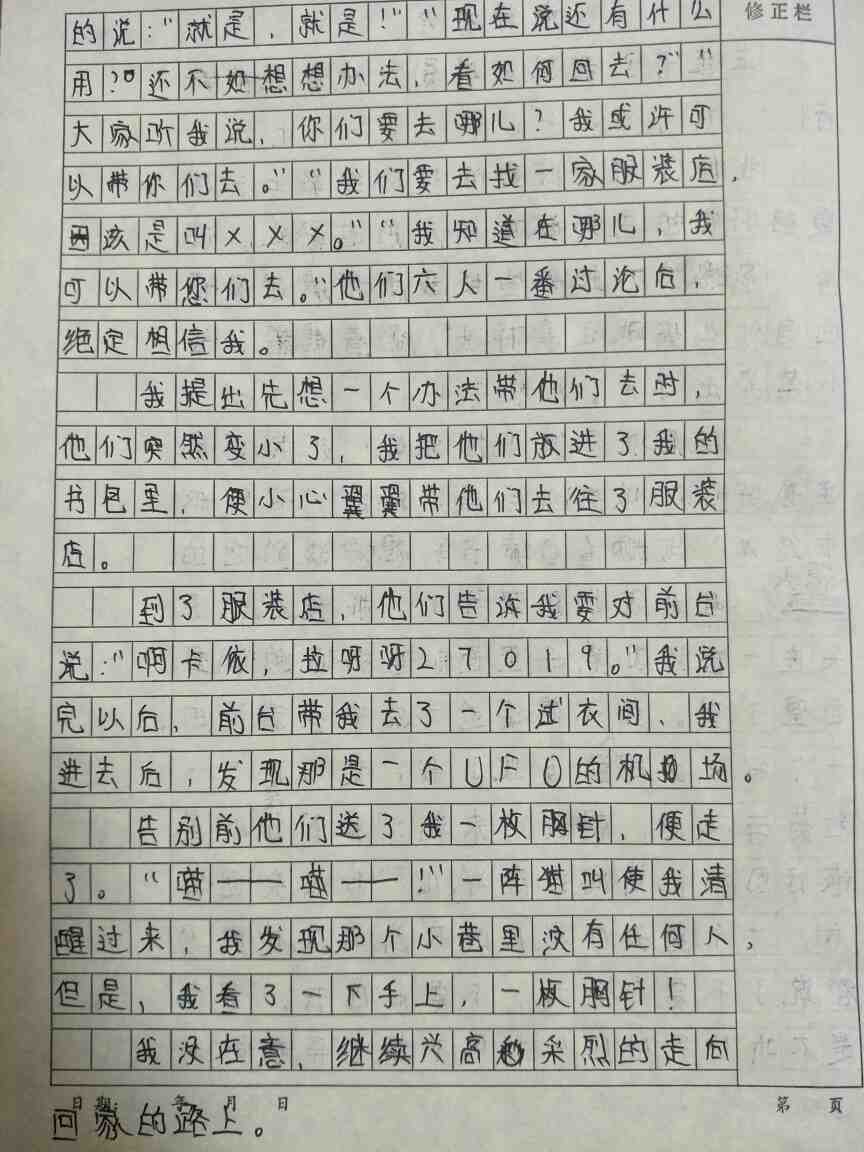 修正栏
的说:“就是,就是!”“现在说还有什么
用?还不如想想办法,看如何回去?”“
大家听我说,你们要去哪儿?我或许可
以带你们去。”“我们要去找一家服装店,
因该是叫×××。”“我知道在哪儿,我
可以带您们去。”他们六人一番讨论后,
绝定相信我。
我提出先想一个办法带他们去时,
他们突然变小了,我把他们放进了我的
书包里,便小心翼翼带他们去往了服装
店。
到了服装店,他们告诉我要对前台
说:“啊卡依,拉呀呀27019。”我说
完以后,前台带我去了一个试衣间、我
进去后,发现那是一个UFO的机场。
告别前他们送了我一枚胸针,便走
了。“喵——喵——!”一阵猫叫使我清
醒过来,我发现那个小巷里没有任何人,
但是,我看了一下手上,一枚胸针!
我没在意,继续兴高采烈的走向
日期: 年 月 日
第 页
回家的路上。